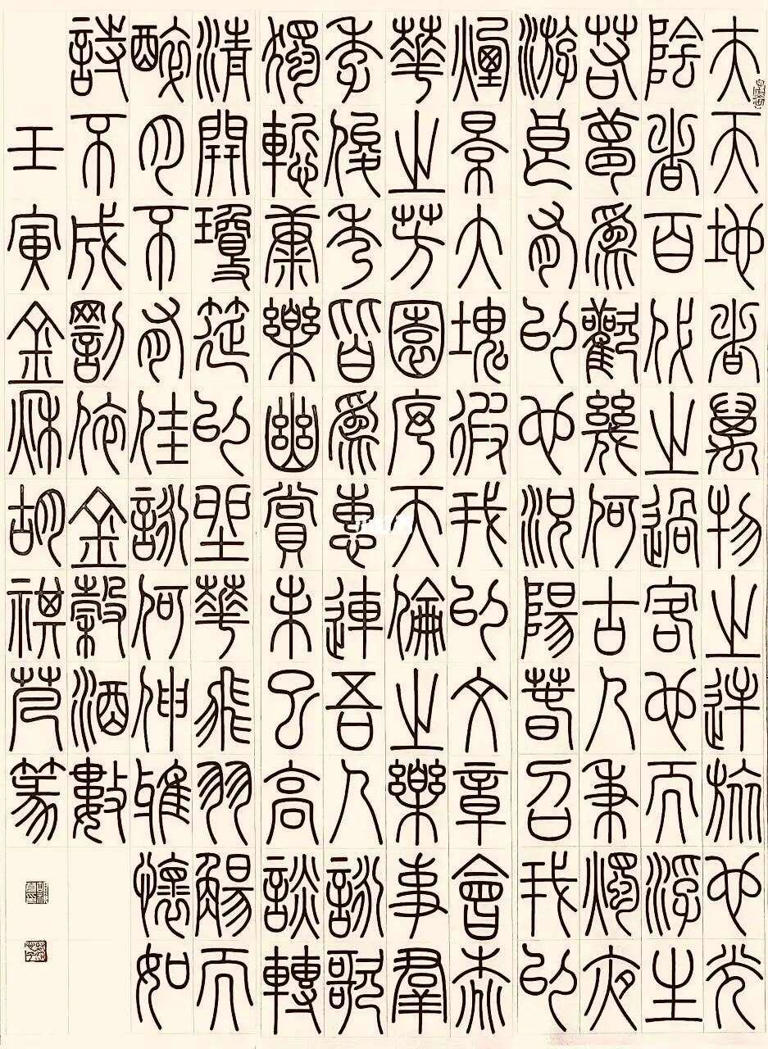 夫天地者萬物之逆旅也光
陰者百代之過客也而浮生
若夢爲歡幾何古人秉燭夜
游良有以也況陽春召我以
煙景大塊假我以文章會桃
華之芳園序天倫之樂事羣
季俊秀皆爲惠連吾人詠歌
獨慙康樂幽賞未已高談轉
清開瓊筵以坐華飛羽觴而
醉月不有佳詠何伸雅懷如
詩不成罰依金穀酒數
壬寅金秋胡祺篆